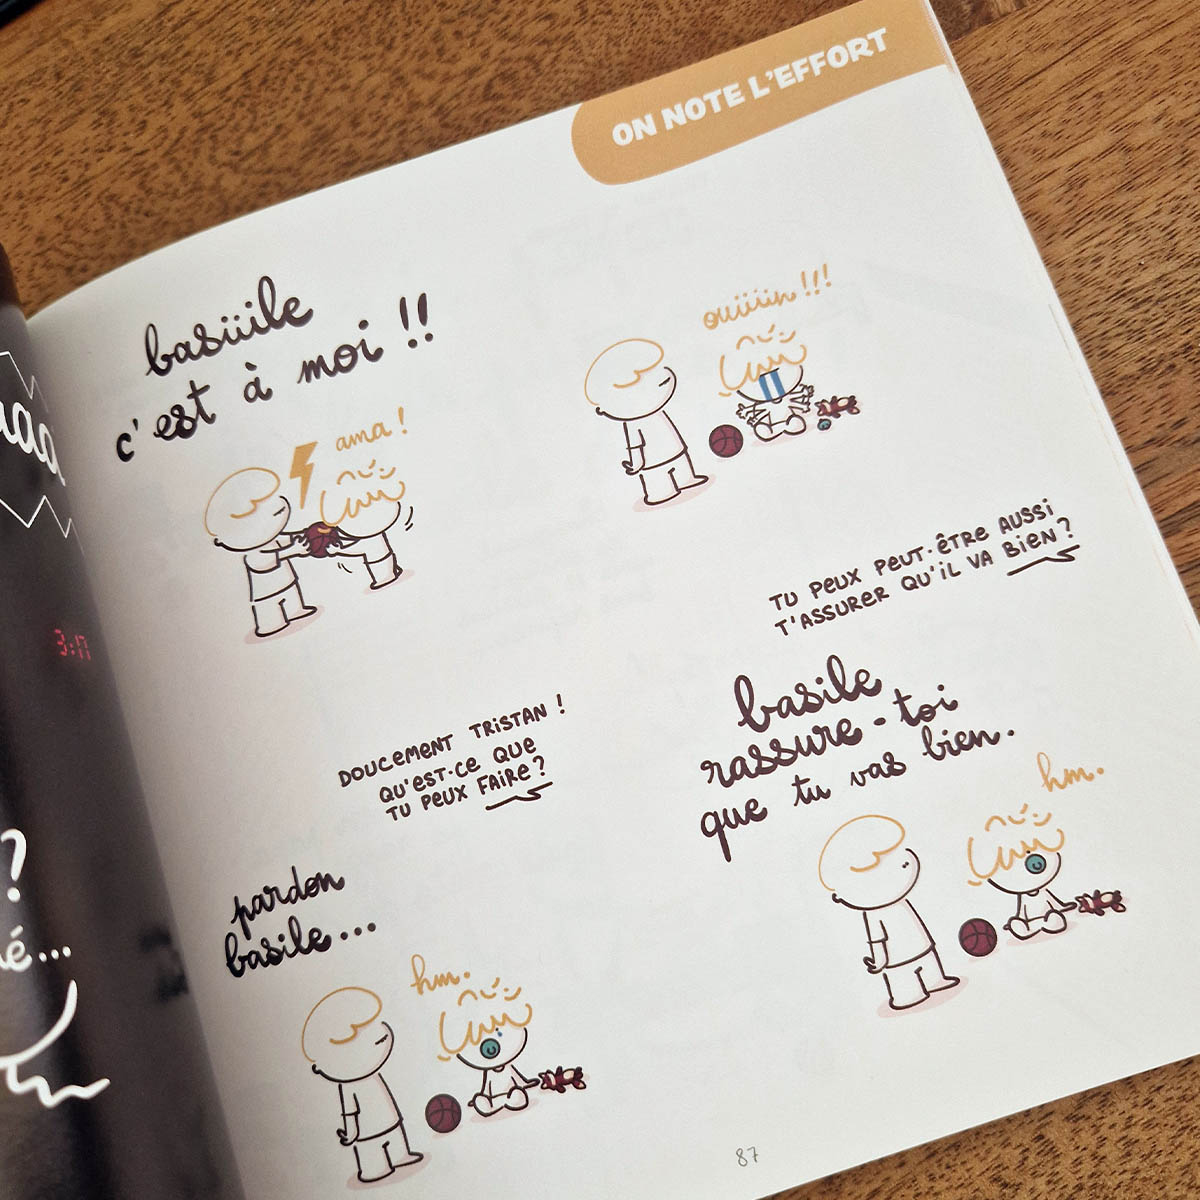 ON NOTE L'EFFORT
basüile
c'est à moi !!
ama !
ouïïïin !!!
DOUCEMENT TRISTAN !
QU'EST-CE QUE
TU PEUX FAIRE ?
TU PEUX PEUT-ÊTRE AUSSI
T'ASSURER QU'IL VA BIEN ?
pardon
basile...
hm.
basile
rassure-toi
que tu vas bien.
hm.
87
3:17
?